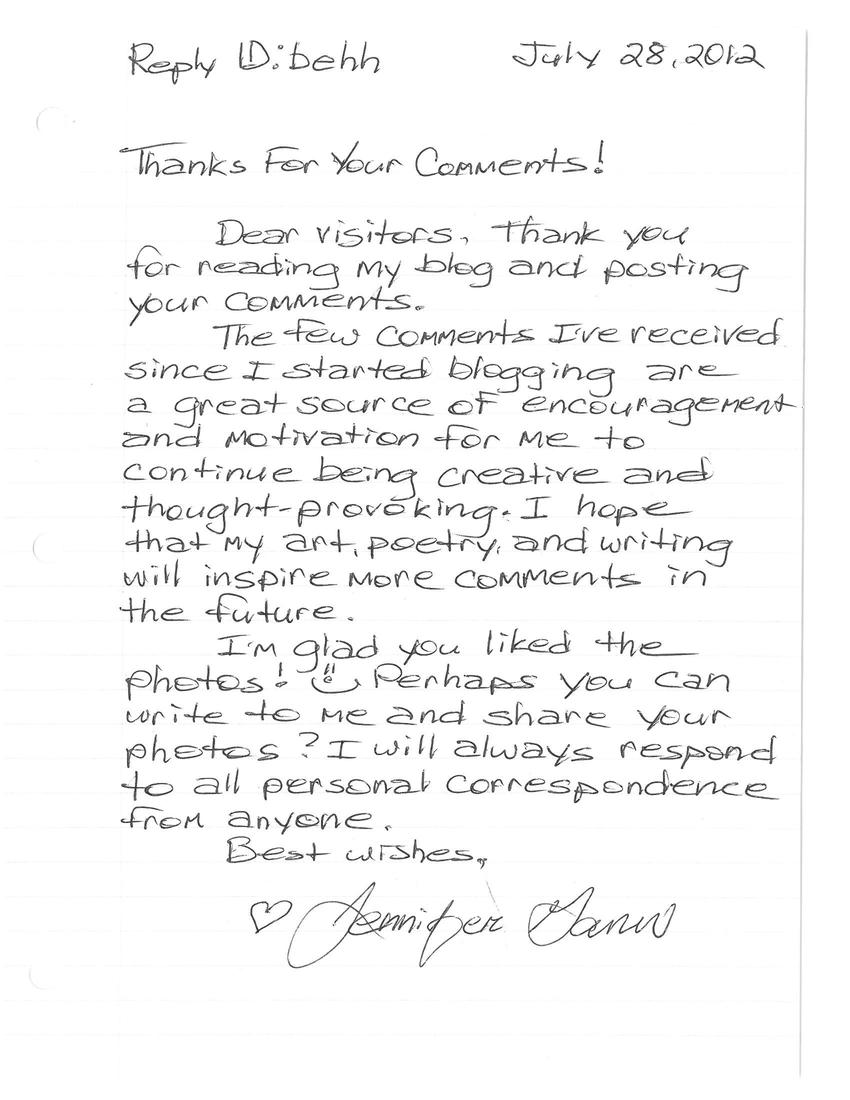 Reply ID: behh July 28, 2012
Thanks For Your Comments!
Dear visitors, Thank you
for reading my blog and posting
your comments.
The few comments I've received
since I started blogging are
a great source of encouragement
and motivation for me to
continue being creative and
thought-provoking. I hope
that my art, poetry, and writing
will inspire more comments in
the future.
I'm glad you liked the
photos! Perhaps you can
write to me and share your
photos? I will always respond
to all personal correspondence
from anyone.
Best wishes,
♡ Jennifer